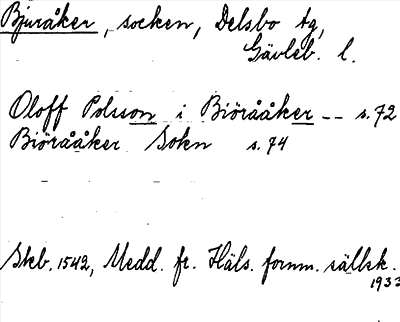 Bjuråker, socken, Delsbo tg,
Gävleb. l.
Oloff Polsson i Biörååker -- s. 72
Biörååker Sokn s. 74
Skb. 1542, Medd. fr. Häls. fornm. sällsk.
1933